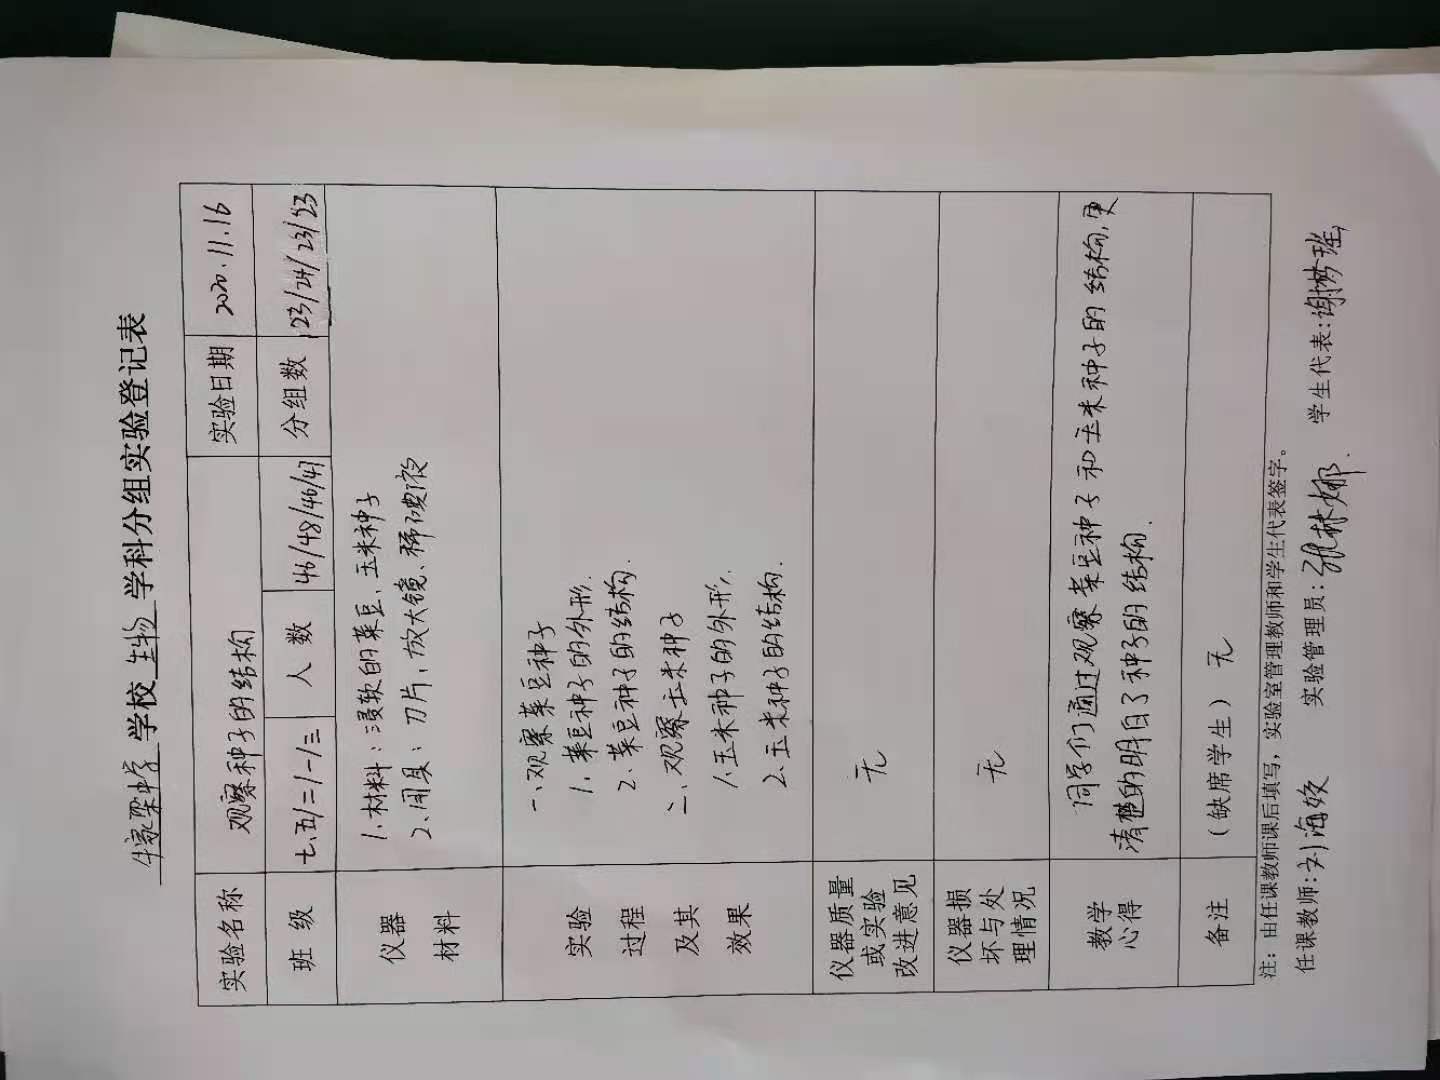 牛家梁中学 学校 生物 学科分组实验登记表
实验名称 观察种子的结构 实验日期 2020.11.16
班 级 七.五/二/一/三 人 数 46/48/46/47 分组数 23/24/23/23
仪器
材料
1.材料：浸软的菜豆、玉米种子
2.用具：刀片，放大镜、稀碘液
实验
过程
及其
效果
一、观察菜豆种子
1.菜豆种子的外形.
2.菜豆种子的结构.
二、观察玉米种子
1.玉米种子的外形.
2.玉米种子的结构.
仪器质量
或实验
改进意见
无
仪器损
坏与处
理情况
无
教学
心得
同学们通过观察菜豆种子和玉米种子的结构,更
清楚的明白了种子的结构.
备注 （缺席学生） 无
注：由任课教师课后填写，实验室管理教师和学生代表签字。
任课教师:刘海姣 实验管理员:张林娜. 学生代表:谢梦瑶